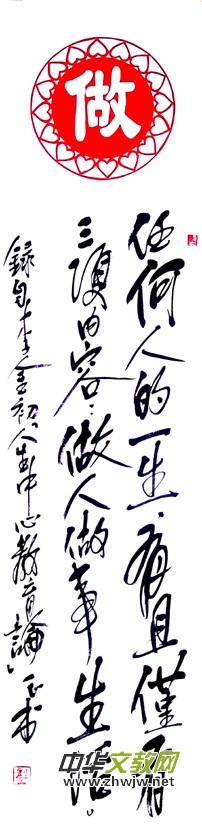 做
任何人的一生，有且僅有
三項内容：做人做事生活。
録自李金初「人生中心教育論」
中华文教网
www.zhwjw.net